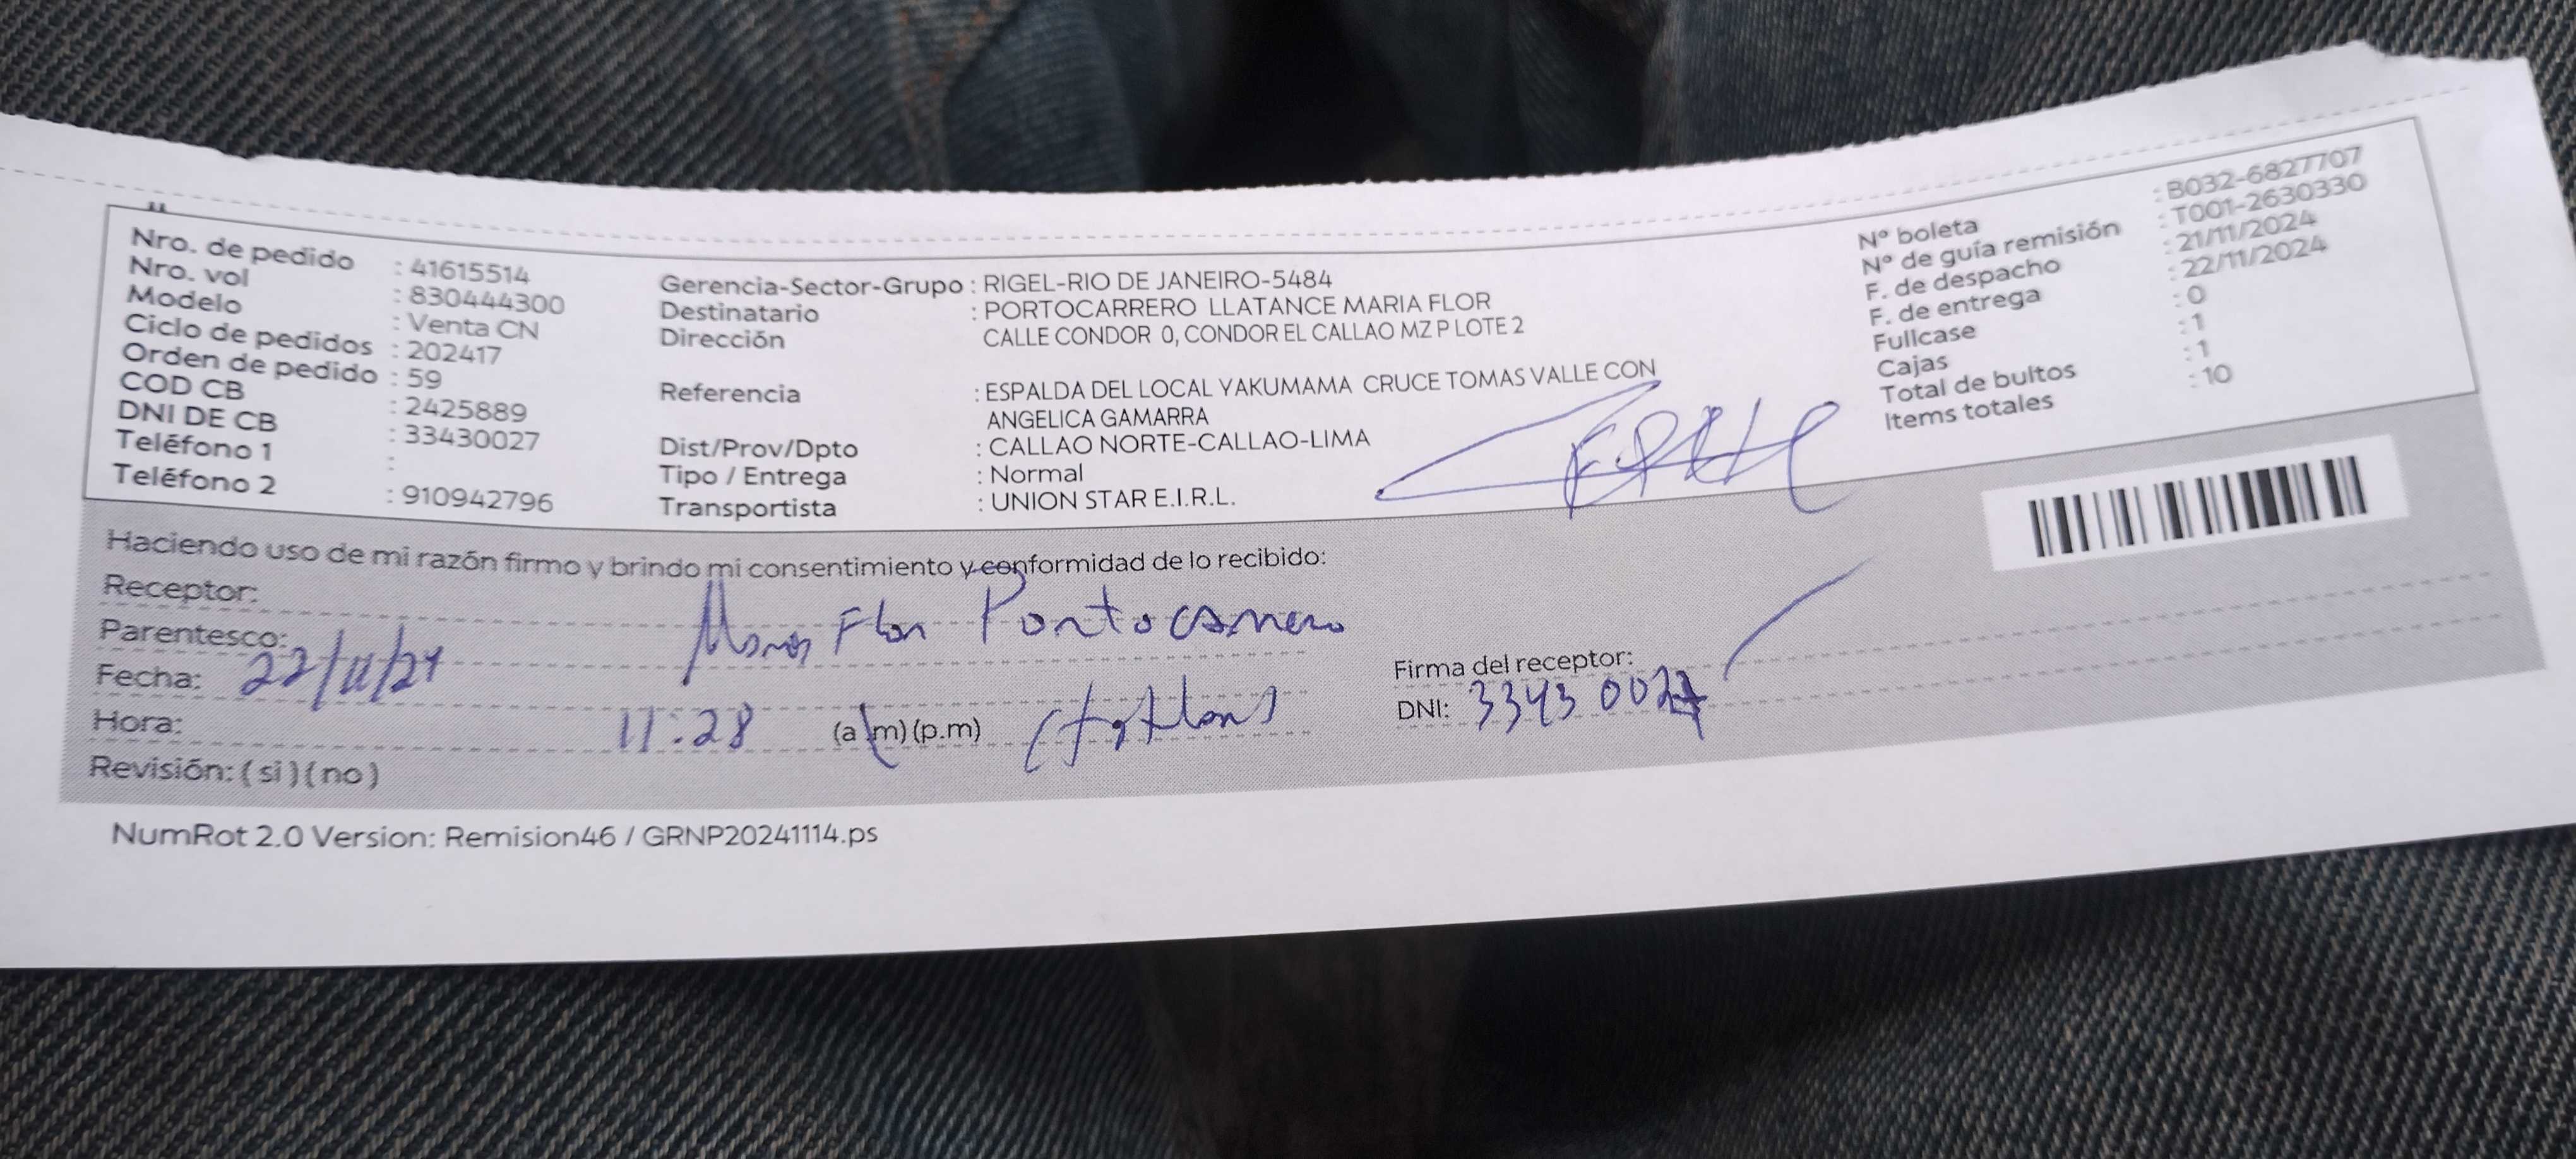 Nro. de pedido : 41615514
Nro. vol : 830444300
Modelo : Venta CN
Ciclo de pedidos : 202417
Orden de pedido : 59
COD CB : 2425889
DNI DE CB : 33430027
Teléfono 1 :
Teléfono 2 : 910942796
Gerencia-Sector-Grupo : RIGEL-RIO DE JANEIRO-5484
Destinatario : PORTOCARRERO LLATANCE MARIA FLOR
Dirección CALLE CONDOR 0, CONDOR EL CALLAO MZ P LOTE 2
Referencia : ESPALDA DEL LOCAL YAKUMAMA CRUCE TOMAS VALLE CON
ANGELICA GAMARRA
Dist/Prov/Dpto : CALLAO NORTE-CALLAO-LIMA
Tipo / Entrega : Normal
Transportista : UNION STAR E.I.R.L.
Nº boleta : B032-6827707
Nº de guía remisión : T001-2630330
F. de despacho : 21/11/2024
F. de entrega : 22/11/2024
Fullcase : 0
Cajas : 1
Total de bultos : 1
Items totales : 10
Haciendo uso de mi razón firmo y brindo mi consentimiento y conformidad de lo recibido:
Receptor: Flor Portocarrero
Parentesco:
Fecha: 22/11/24
Hora: 11:28 (a.m) (p.m)
Firma del receptor:
DNI: 33430027
Revisión: ( si ) ( no )
NumRot 2.0 Version: Remision46 / GRNP20241114.ps